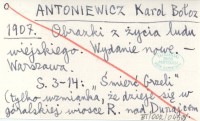 ANTONIEWICZ Karol Bołoz
1907. Obrazki z życia ludu
wiejskiego. Wydanie nowe. –
Warszawa.
S. 3-14: "Śmierć Grzeli"
(tylko wzmianka, że dzieje się w
góralskiej wiosce R. nad Dunajcem